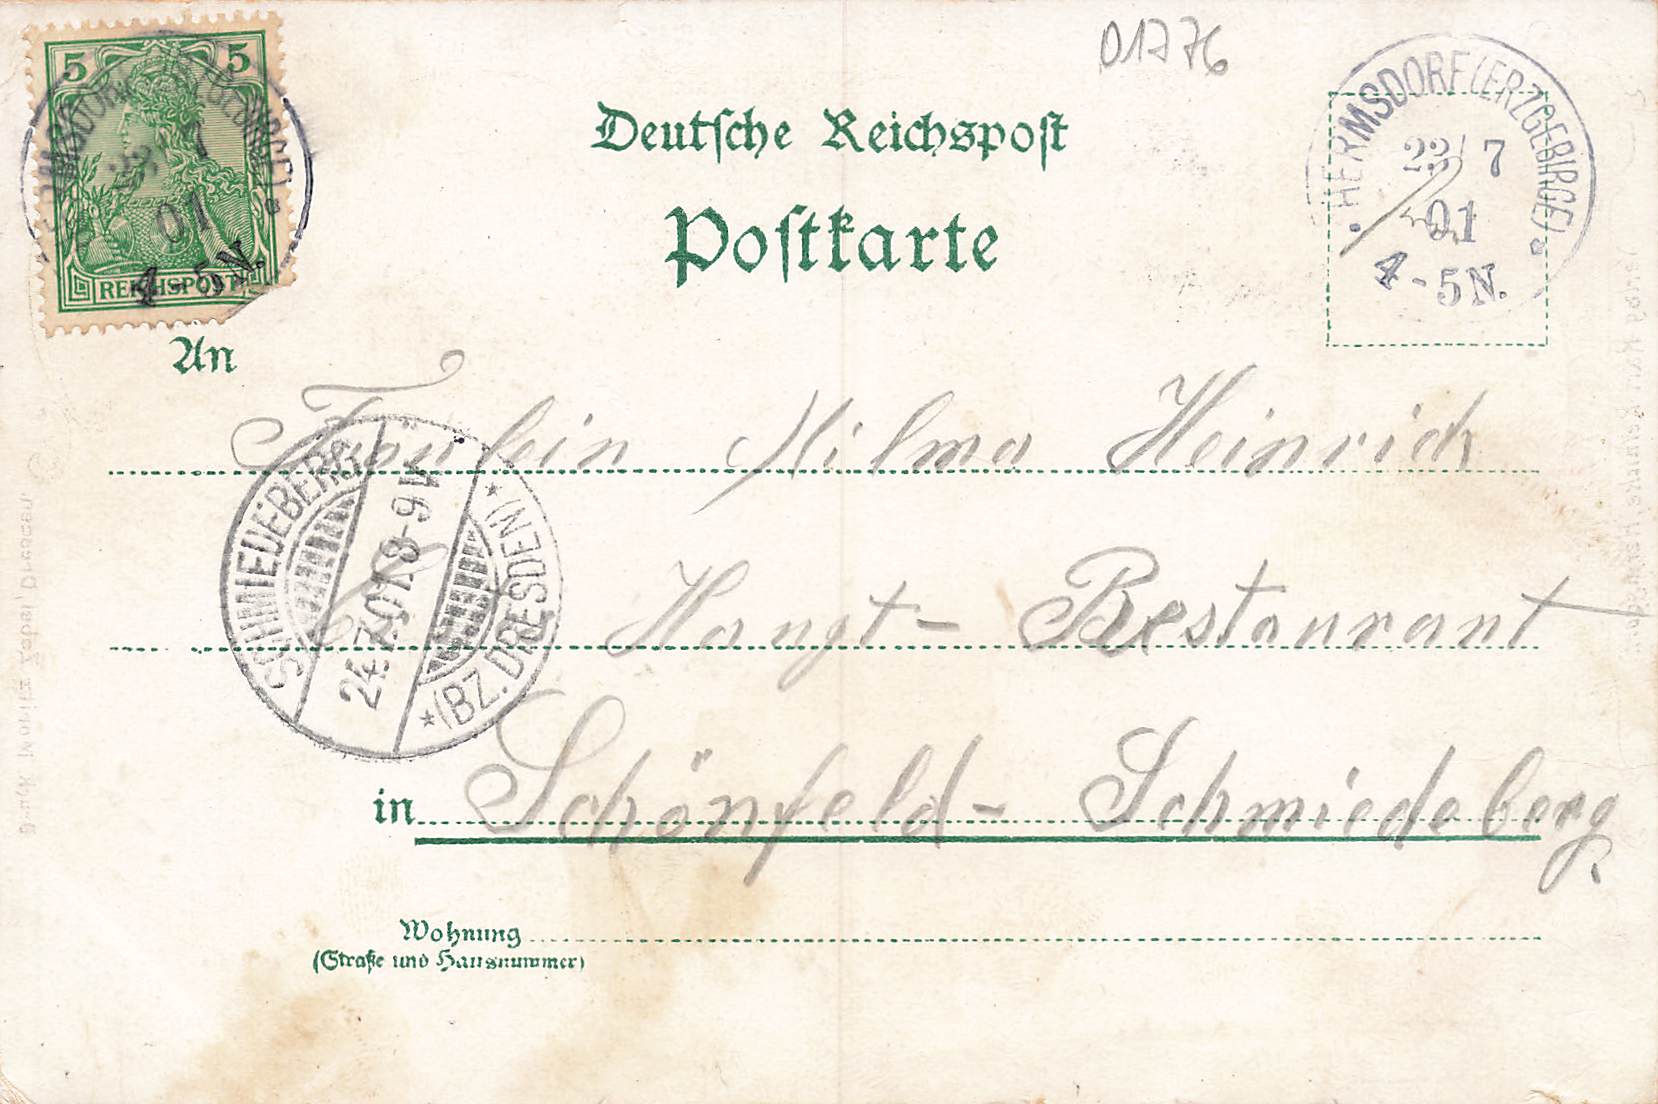 01776
Deutsche Reichspost
Postkarte
5 5
REICHSPOST
HERMSDORF (ERZGEBIRGE)
23 7
01
4-5N.
HERMSDORF (ERZGEBIRGE)
23 7
01
4-5N.
An
Fräulein Milma Heinrich
SCHMIEDEBERG
24.7.01.8-9V.
(BZ. DRESDEN)
Haugt- Restaurant
in Schönfeld- Schmiedeberg
Wohnung
(Straße und Hausnummer)